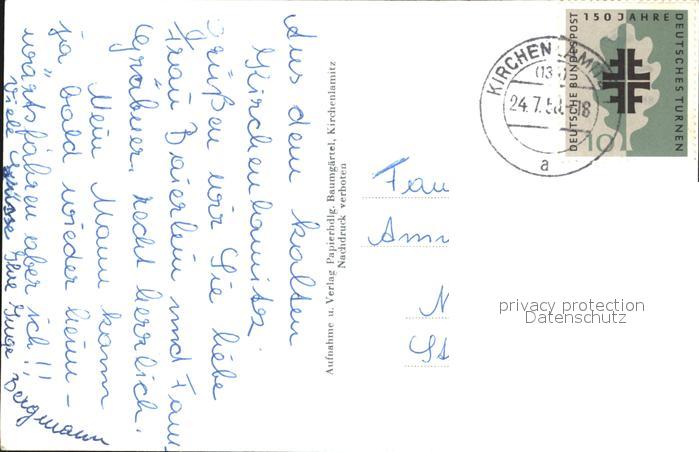 Aus dem kalten
Kirchenlamitz.
Grüßen wir Sie liebe
Frau Baierlein und Frau
Gräbner, recht herzlich.
Mein Mann kann
ja bald wieder heim-
wärtsfahren aber ich!!
Viele Grüsse Ihre Inge Bergmann
Aufnahme u. Verlag Papierhdlg. Baumgärtel, Kirchenlamitz
Nachdruck verboten
KIRCHENLAMITZ
(13
24.7.58.-18
a
150 JAHRE
DEUTSCHES TURNEN
DEUTSCHE BUNDESPOST
10
Frau
Ann
N
St
privacy protection
Datenschutz